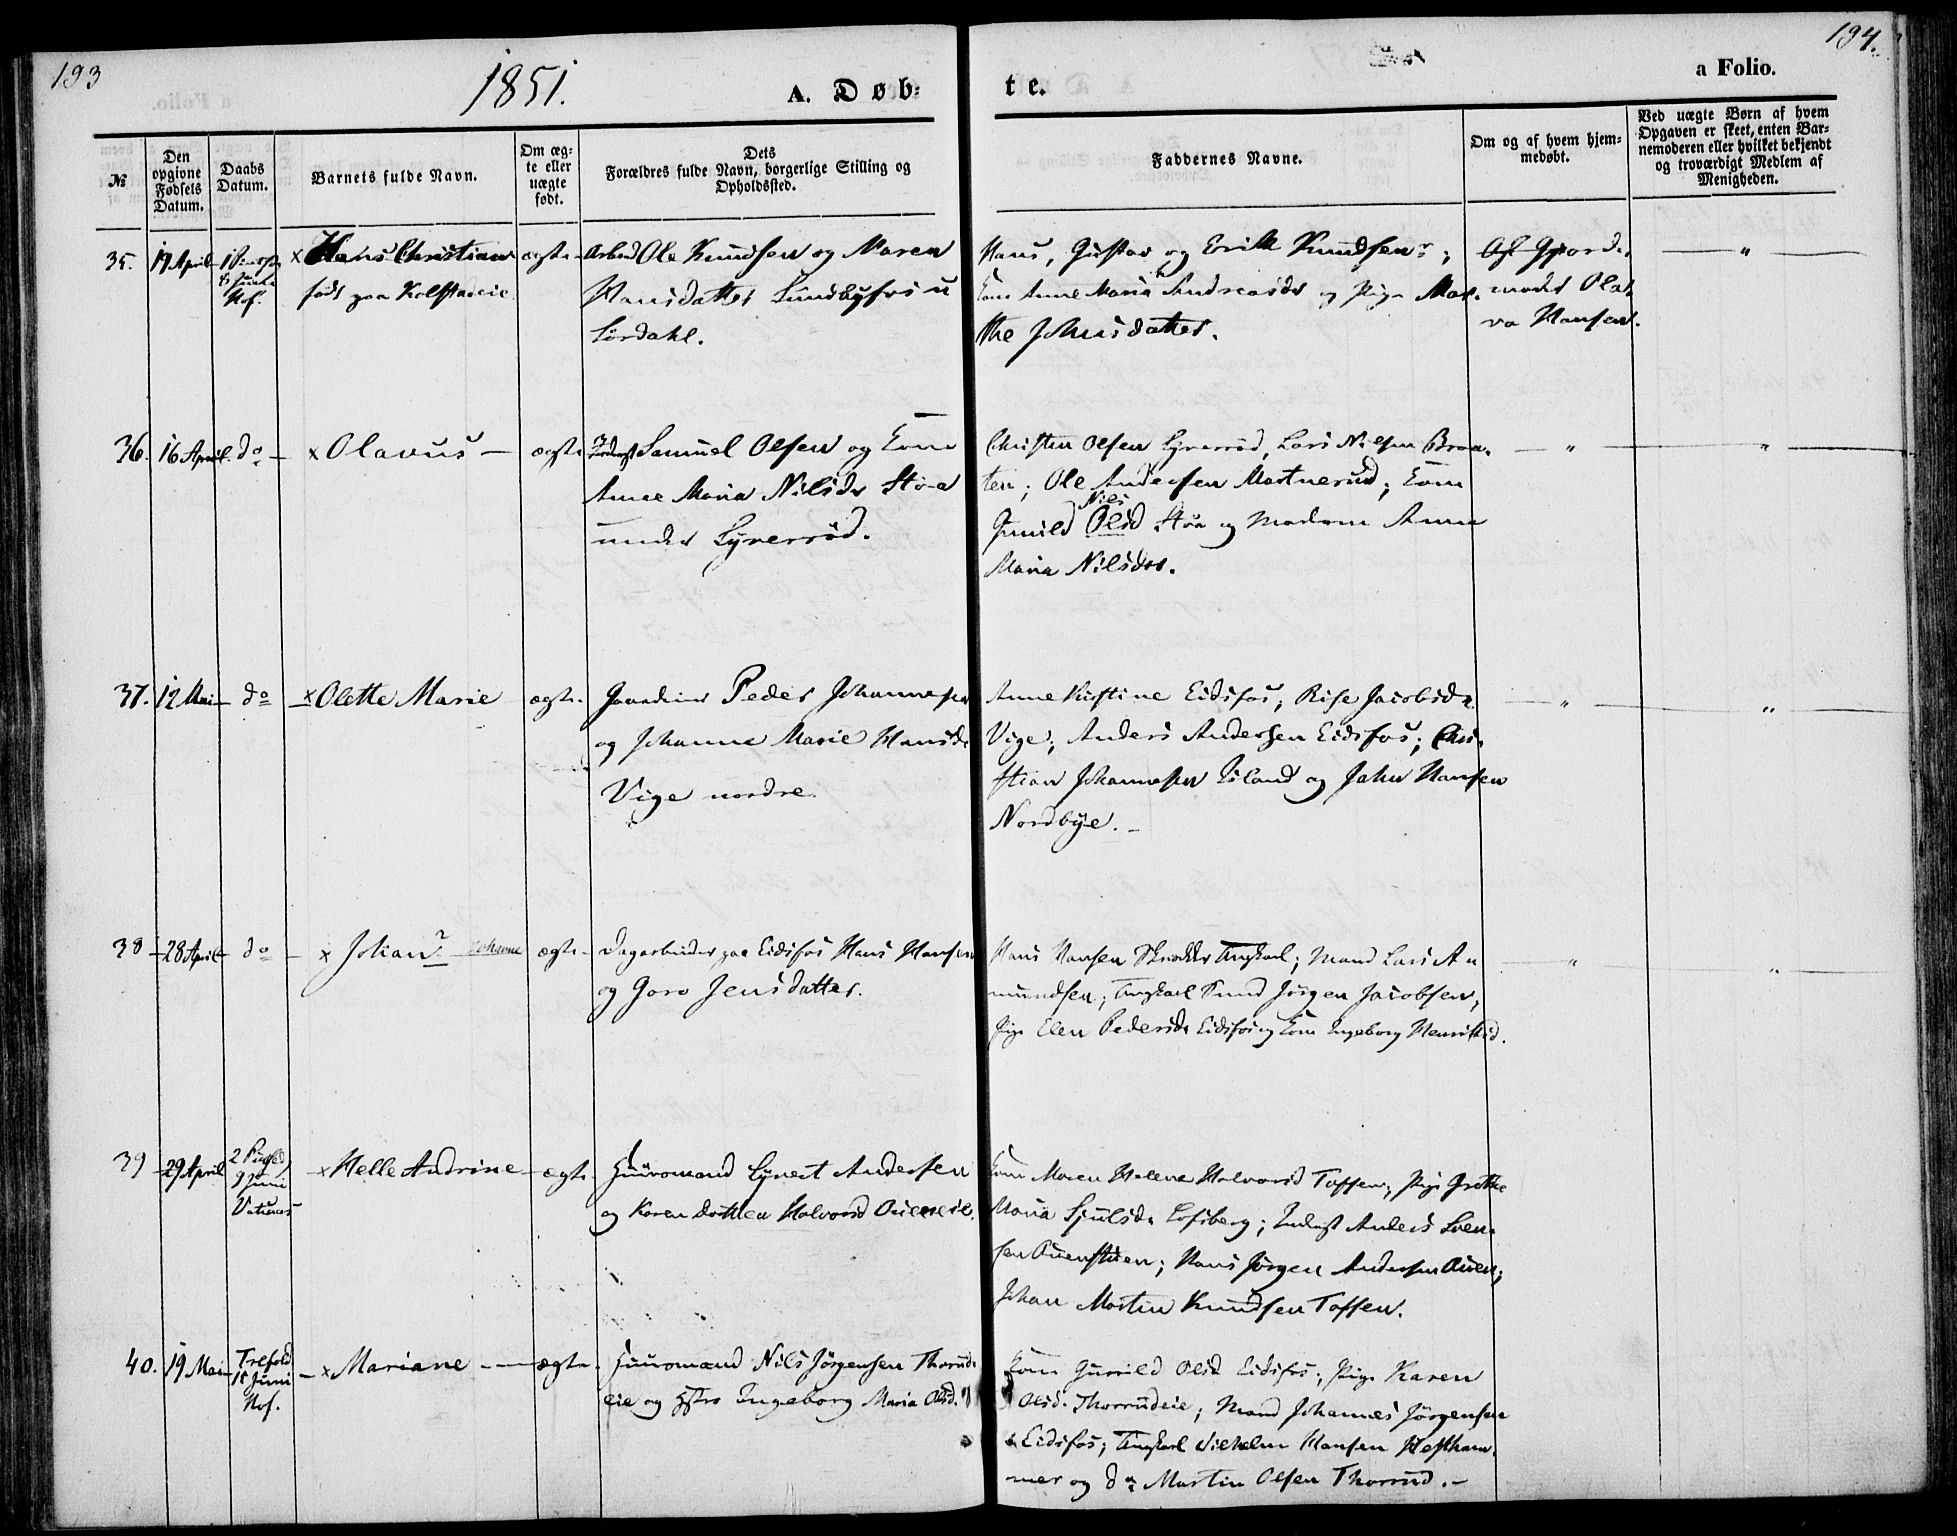 193
1851.
A. Døb-
te.
194.
a Folio.
№
Den opgivne Fødsels Datum.
Daabs Datum.
Barnets fulde Navn.
Om ægte eller uægte født.
Dets Forældres fulde Navn, borgerlige Stilling og Opholdssted.
Faddernes Navne.
Om og af hvem hjemmedøbt.
Ved uægte Børn af hvem Opgaven er skeet, enten Barnemoderen eller hvilket bekjendt og troværdigt Medlem af Menigheden.
35. 19 April
8 Juni
Hof.
x Hans Christian
født paa
ægte
Arbeid Ole Knudsen og Maren
Hansdatter Lundbyfos u
Lørdahl.
Hans, Gustav og Erik Knudsenr;
Kone Anne Maria Andreasdr og Pige Mar-
the Johnsdatter.
Af Gjorde-
moder Ola-
va Hansen.
"
36. 16 April do
x Olavus
ægte
Inderst Samuel Olsen og Kone
Anne Maria Nilsdr Støa
under Lyverød.
Christen Olsen Lyverød, Lars Nilsen Braa-
ten; Ole Andersen Martnerud; Kone
Nils
Gunild Olsd Støa og Madam Anne
Maria Nilsdtr.
" "
37. 12 Mai do
x Olette Marie
ægte
Gaardbruger Peder Johannesen
og Johanne Marie Hansdr
Vige nordre
Anne Kirstine Eidsfos; Rise Jacobsdr
Vige; Anders Andersen Eidsfos; Chri-
stian Johannesen Eiland og John Hansen
Nordbye.
" "
38 28 April do
x Johan? Johanne
ægte
Dagarbeider paa Eidsfos Hans Hansen
og Goro Jensdatter.
Hans Hansen Ungkarl; Mand Lars A
mundsen; Ungkarl Knud Jørgen Jacobsen,
Pige Elen Pedersdr Eidsfos og Kone Ingeborg Henriksd.
" "
39 29 April
2 Pintsed
9 Juni
Vatnaas
x Helle Andrine
ægte
Huusmand Syvert Andersen
og Karen Dorthea Halvorsd Oueneie.
Kone Maren Helene Halvorsd Toffen; Pige Grethe
Maria Sjulsdr Lofsberg; Inderst Anders Sven-
sen Ouenstuen; Hans Jørgen Andersen Ouen;
Johan Martin Knudsen Toffen.
40. 19 Mai
Trefold
15 Juni
Hof.
x Mariane
ægte
Huusmand Nils Jørgensen Thorud-
eie og Hstro Ingeborg Maria Olsd.
Kone Gunild Olsd Eidsfos; Pige Karen
Olsd. Thorrudeie; Mand Johannes Jørgensen
Eidsfos; Ungkarl Vilhelm Hansen Hestham-
mer og do Martin Olsen Thorrud.